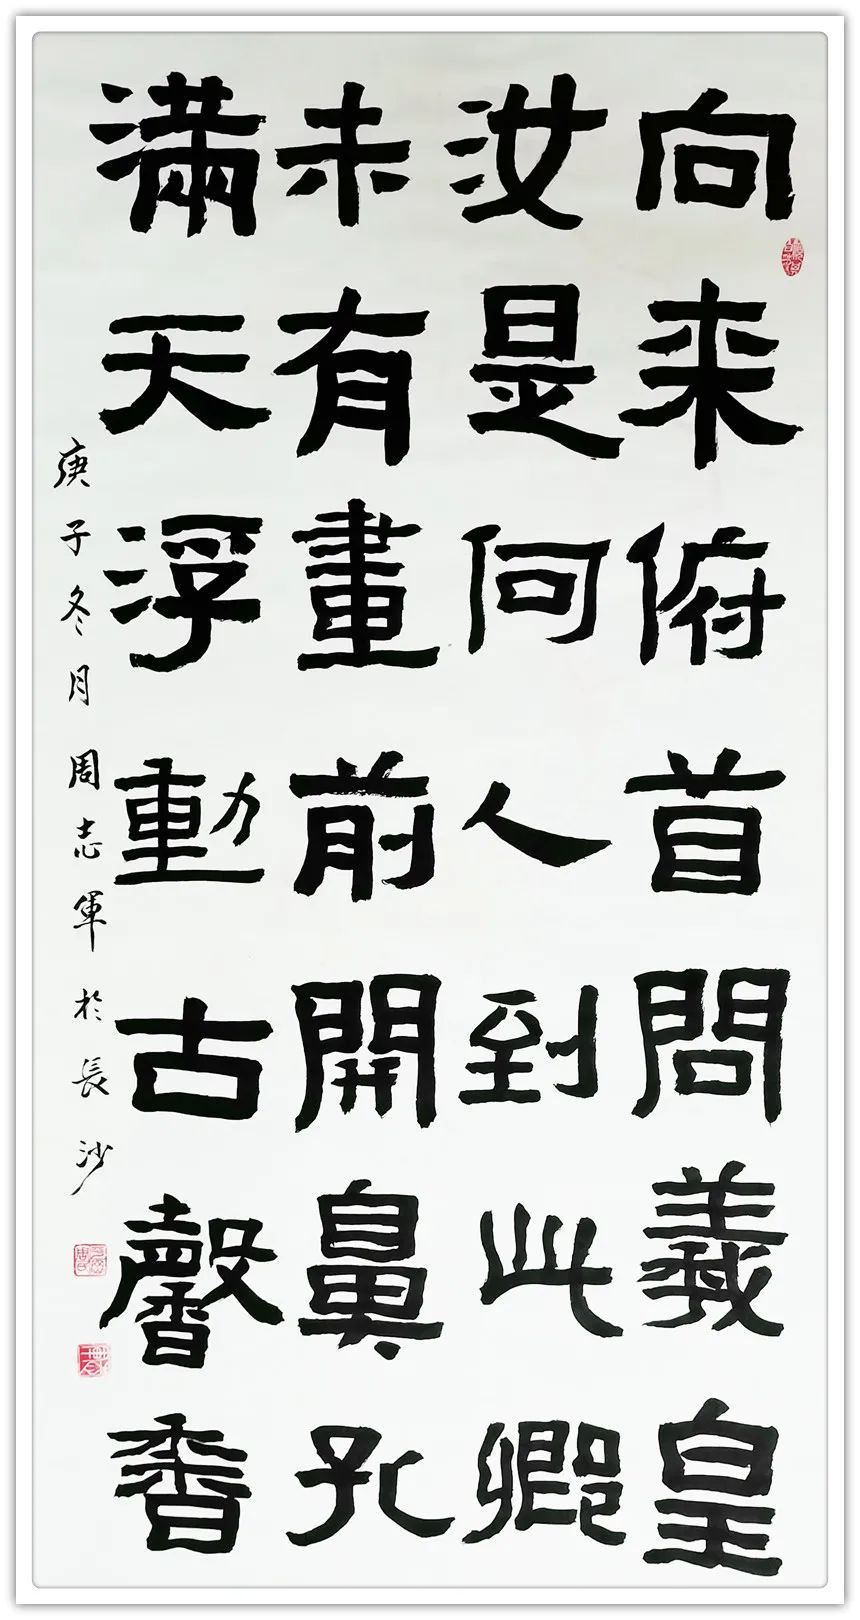 向来俯首問義皇
汝是何人到此卿
未有畫前開鼻孔
満天浮動古馨香
庚子冬月周志軍於長沙